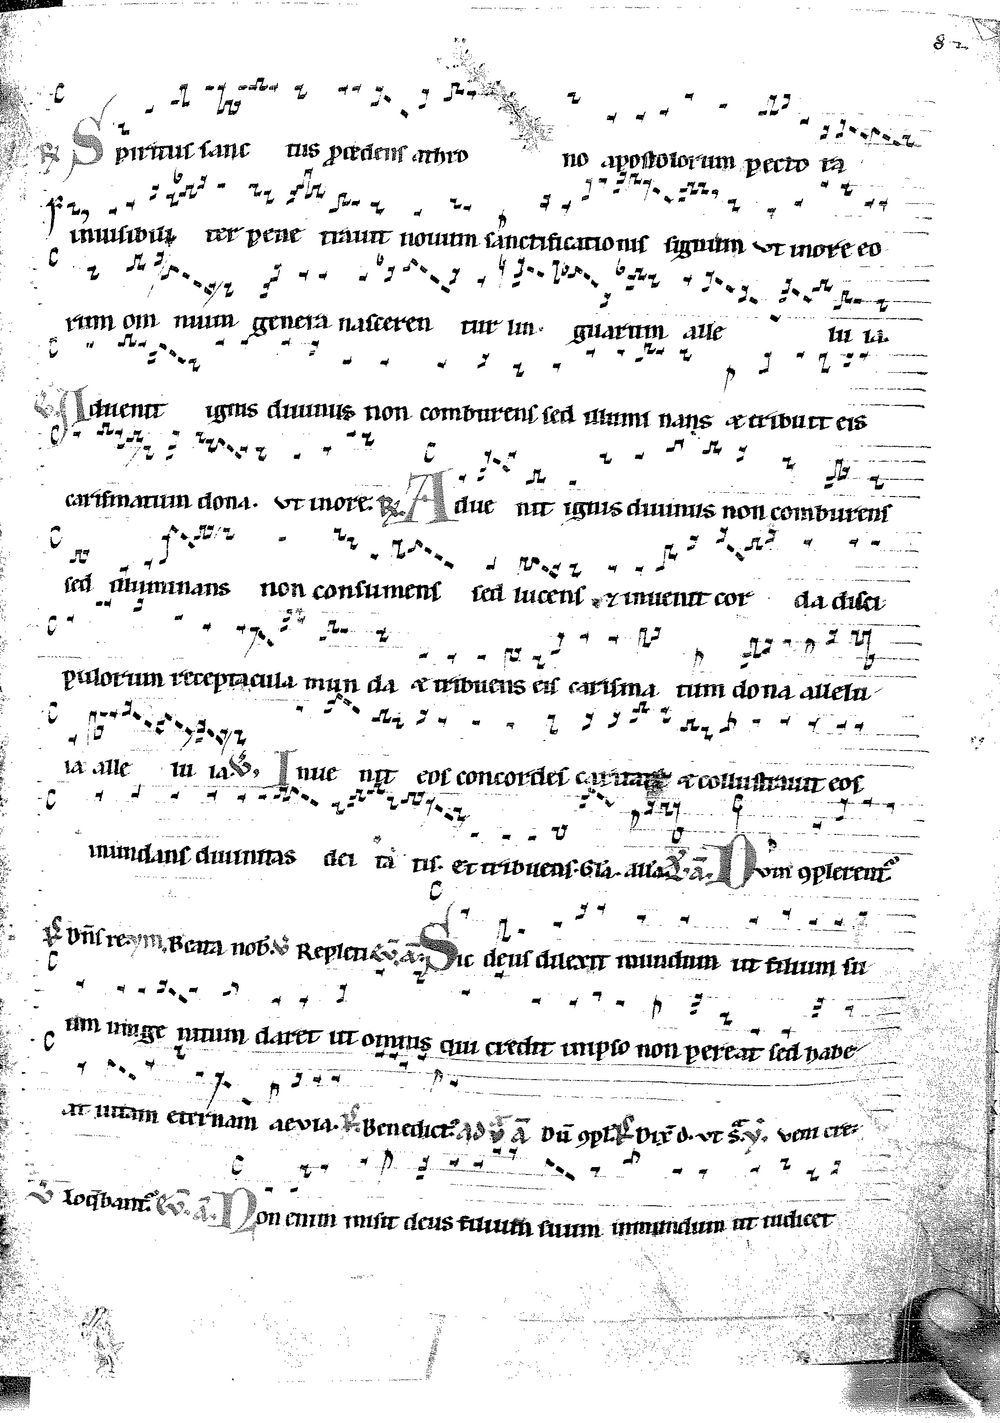 82
℟ Spiritus sanc tus p̄cedens athro no apostolorum pecto ra
inuisibili ter pene trauit nouum sanctificationis signum vt inore eo
rum om nium genera nasceren tur lin guarum alle lu ia.
℣ Aduenit ignis diuinus non comburens sed illumi nans & tribuit eis
carismatum dona. vt inore. ℟ Adue nit ignis diuinus non comburens
sed illuminans non consumens sed lucens & inuenit cor da disci
pulorum receptacula mun da & tribuens eis carisma tum dona allelu
ia alle lu ia. ℣ Inue nit eos concordes caritate & collustrauit eos
inundans diuinitas dei ta tis. et tribuens. Gła. alła ā. Dum 9plerent᷒
℟ Dn̄s re Beata nob. ℣ Repleti ā. Sic deus dilexit mundum ut filium su
um unige nitum daret ut omnis qui credit inipso non pereat sed habe
at uitam eternam aeuia. ℟ Benedict᷒ ad ā Dū 9pl. ℟ Dix̄ d. vt s̄. veni cre
℣ Loq̄bant᷒ ā. Non enim misit deus filium suum inmundum ut iudicet